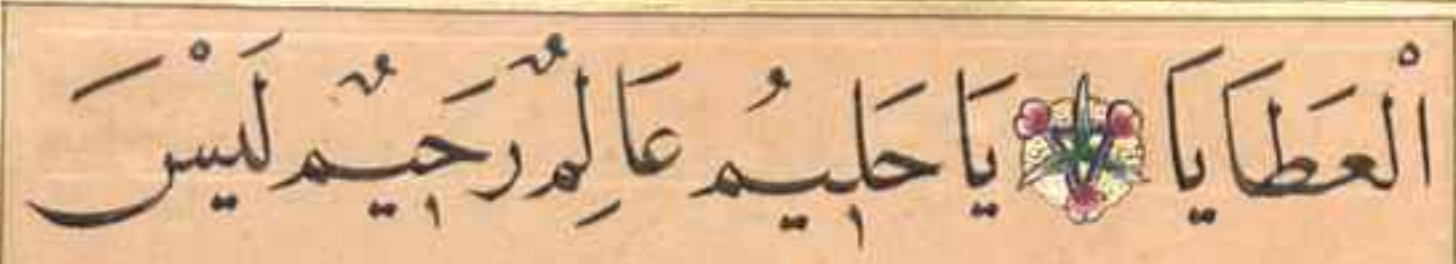 الْعَطَايَا يَا حَلِيمُ عَالِمٌ رَحِيمٌ لَيْسَ